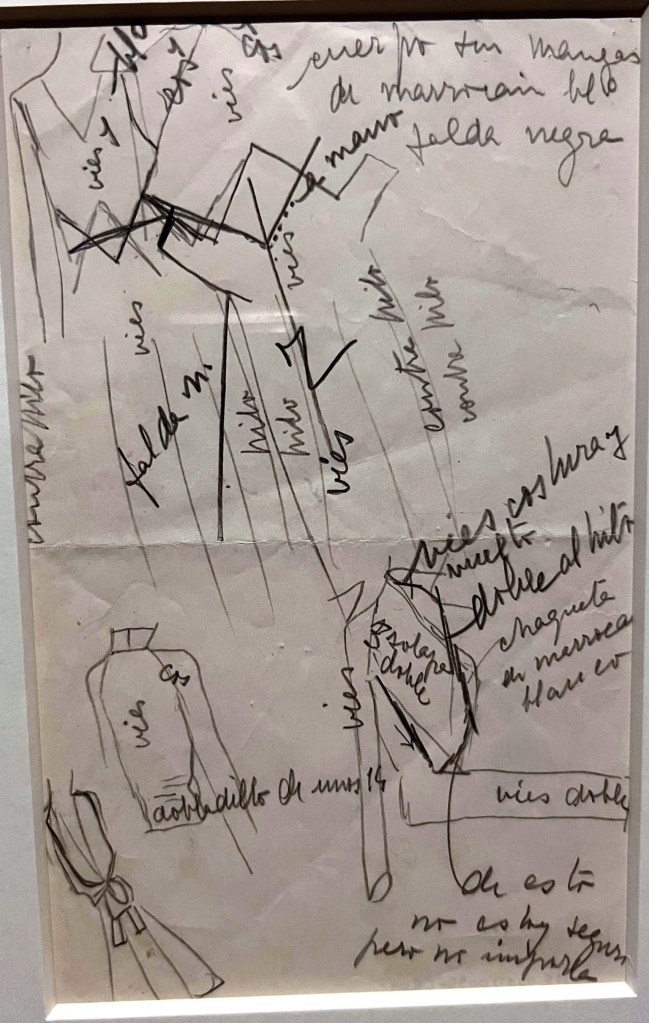 cuerpo sin mangas
de marrocain blº
falda negra
vies y hilo
cos y
vies
cos
vies y
a mano
vies
vies
contra hilo
falda n.
hilo
hilo
vies
contra hilo
contra hilo
contra hilo
vies costura y
vuelto
doble al hilo
chaqueta
de marroca
blanco
cos
solapa
doble
vies
cos
vies
dobladillo de unos 14
vies doble
de esto
no estoy segura
pero no importa